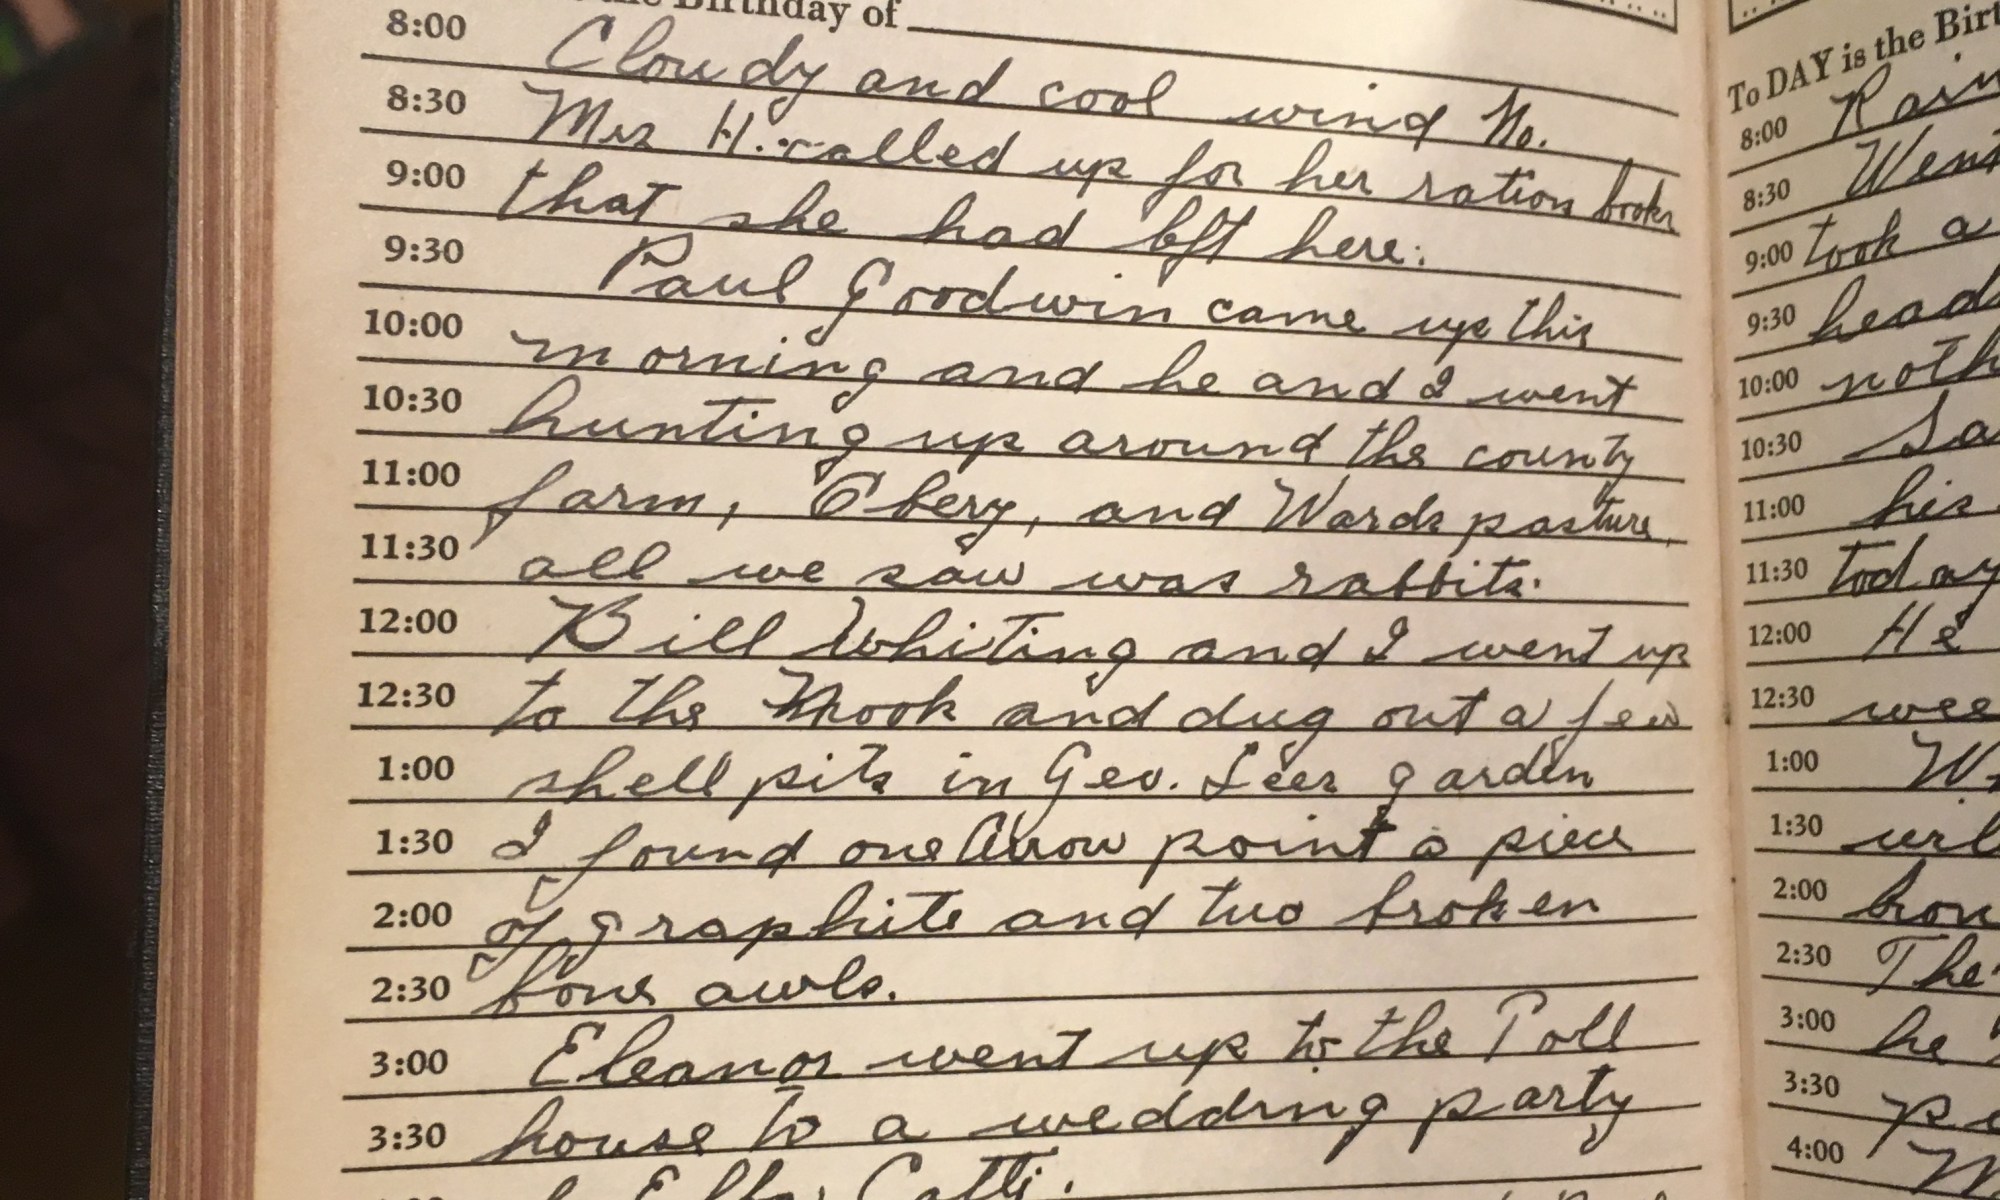 the Birthday of
8:00 Cloudy and cool wind No.
8:30 Mrs H. called up for her ration books
9:00 that she had left here.
9:30 Paul Goodwin came up this
10:00 morning and he and I went
10:30 hunting up around the county
11:00 farm, Obery, and Wards pasture,
11:30 all we saw was rabbits.
12:00 Bill Whiting and I went up
12:30 to the Nook and dug out a few
1:00 shell pits in Geo. Lees garden
1:30 I found one Arrow point a piece
2:00 of graphite and two broken
2:30 bone awls.
3:00 Eleanor went up to the Toll
3:30 house to a wedding party
Ella
To DAY is the Birt
8:00 Rain
8:30 Went
9:00 took a
9:30 head
10:00 noth
10:30 Sa
11:00 his
11:30 today
12:00 He
12:30 wee
1:00 W
1:30
2:00
2:30 The
3:00 he
3:30
4:00